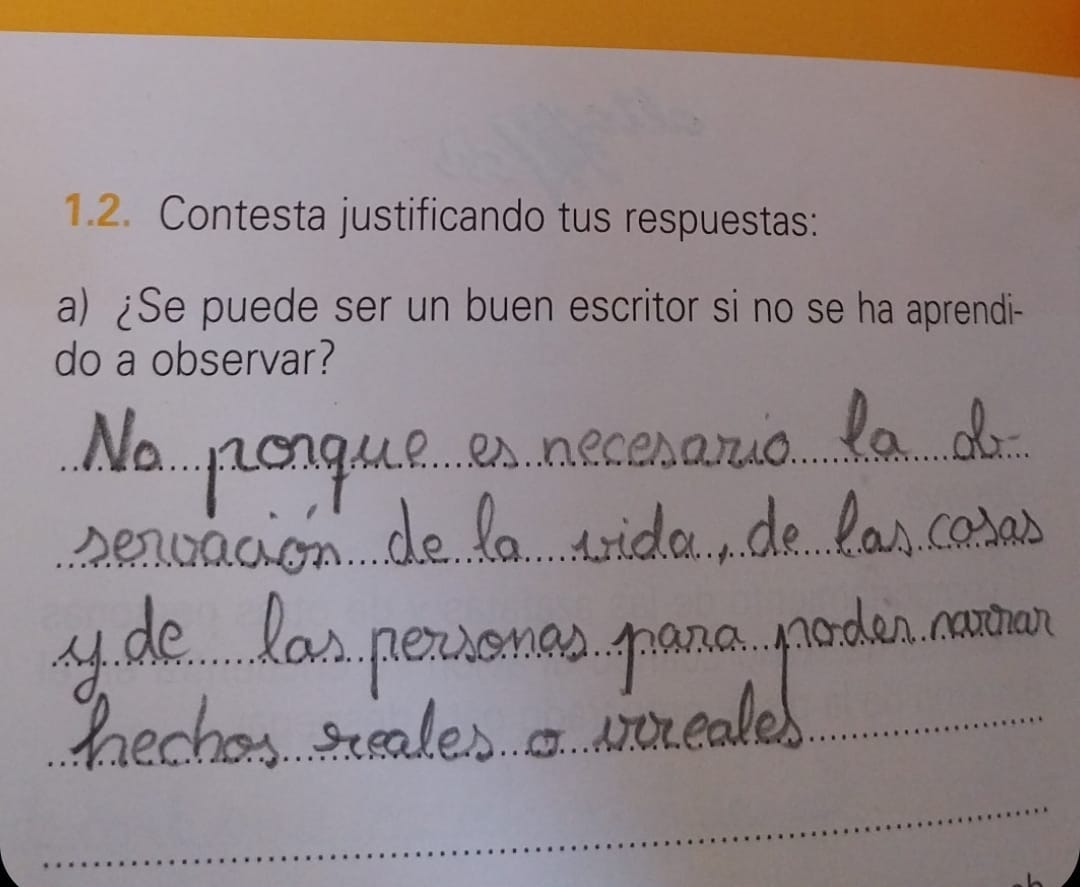 1.2. Contesta justificando tus respuestas:
a) ¿Se puede ser un buen escritor si no se ha aprendi-
do a observar?
No porque es necesario la ob-
servación de la vida, de las cosas
y de las personas para poder narrar
hechos reales o irreales